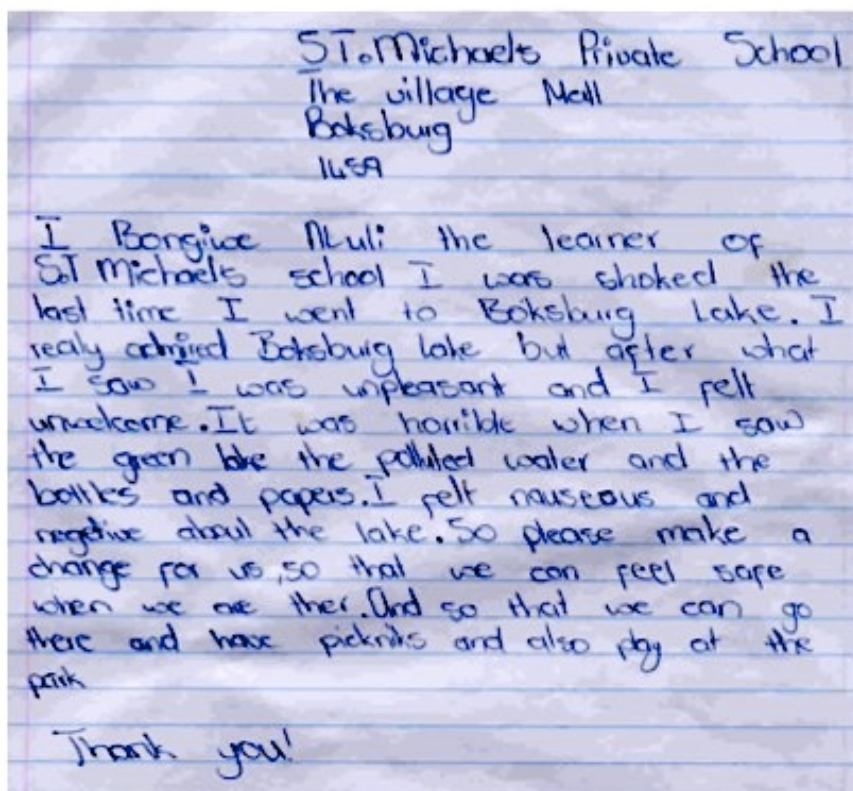 ST. Michaels Private School
The village Mall
Boksburg
1459
I Bongiwe Ntuli the learner of
S.T Michaels school I was shoked the
last time I went to Boksburg Lake. I
realy admired Boksburg lake but after what
I saw I was unpleasant and I felt
unwelcome. It was horrible when I saw
the green lake the polluted water and the
bottles and papers. I felt nauseous and
negetive about the lake. So please make a
change for us, so that we can feel safe
when we are ther. And so that we can go
there and have pickniks and also play at the
park
Thank you!